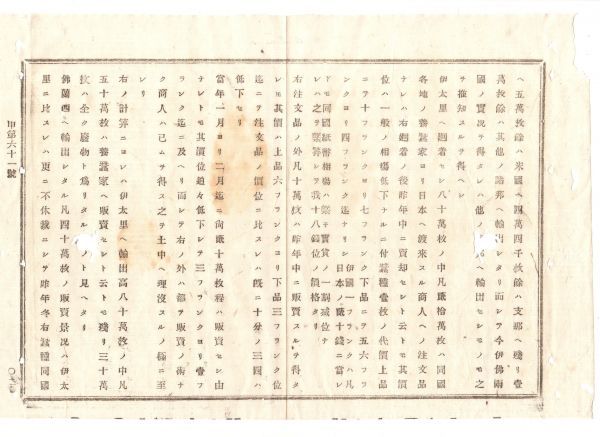 ヘ五萬枚餘ハ米國ヘ四萬四千枚餘ハ支那ヘ殘リ壹
萬枚餘ハ其他ノ諸邦ヘ輸出シタリ而シテ今伊佛兩
國ノ實況ヲ得タレハ他ノ國ヘ輸出セシモノモ之
ヲ推知スルヲ得ヘシ
伊太里ヘ廻着セシ八十萬枚ノ中凡貳拾萬枚ハ同國
各地ノ養蠶家ヨリ日本ヘ渡來スル商人ヘノ注文品
ナレハ右廻着ノ後昨年中ニ賣却セシト云トモ其價
位ハ一般ノ相場低下ナルニ付蠶種壹枚ノ代價上品
ニテ十フランクヨリ七フランク下品ニテ五六フラ
ンクヨリ四フランク迄ナリシ伊國一フランクハ凡日本ノ貳十錢ニ當レ
ドモ同國紙幣相場ハ正實貨ノ一割減位ナ
レハ之ヲ算シテ我十八錢位ノ價格タリ
右注文品ノ外凡十萬枚ハ昨年中ニ販賣スルヲ得タ
レモ其價ハ上品六フランクヨリ下品三フランク位
迄ニテ注文品ノ價位ニ比スレハ旣ニ十分ノ三四ハ
低下セリ
當年一月ヨリ二月迄ニ向貳十萬枚程ハ販賣セシ由
ナレトモ其價位追々低下シテ三フランクヨリ壹フ
ランク迄ニ及ヘリ而シテ右ノ外ハ都テ販賣ノ術ナ
ク商人ハ已ムヲ得ス之ヲ土中ヘ埋沒スルノ極ニ至
レリ
右ノ計算ニヨレハ伊太里ヘ輸出高八十萬枚ノ中凡
五十萬枚ハ養蠶家ヘ販賣セシト云トモ殘リ三十萬
枚ハ全ク廢物ト爲リタルモノト見ヘタリ
佛蘭西ヘ輸出シタル凡四十萬枚ノ販賣景況ハ伊太
里ニ比スレハ更ニ不休裁ニシテ昨年冬右蠶種同國
甲第六十一號